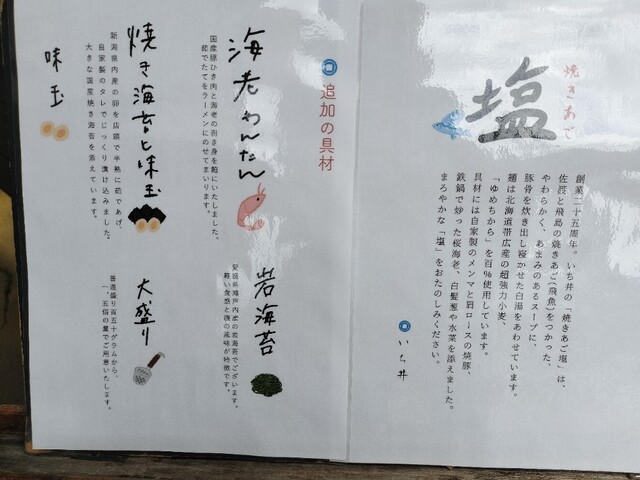 焼きあご
塩
創業二十五周年。いち井の「焼きあご塩」は、
佐渡と飛島の焼きあご(飛魚)をつかった、
やわらかく、あまみのあるスープに、
豚骨を炊き出し寝かせた白湯をあわせています。
麺は北海道帯広産の超強力小麦、
「ゆめちから」を百%使用しています。
具材には自家製のメンマと肩ロースの焼豚、
鉄鍋で炒った桜海老、白髪葱や水菜を添えました。
まろやかな「塩」をおたのしみください。
いち井
追加の具材
海老わんたん
国産豚ひき肉と海老の剥き身を餡にいたしました。
茹でたてをラーメンにのせてまいります。
岩海苔
愛媛県瀬戸内産の岩海苔でございます。
軽い食感と磯の風味が特徴です。
焼き海苔と味玉
新潟県内産の卵を店頭で半熟に茹であげ、
自家製のタレでじっくり漬け込みました。
大きな国産焼き海苔を添えています。
大盛り
普通盛り百五十グラムから、
一、五倍の量でご用意いたします。
味玉